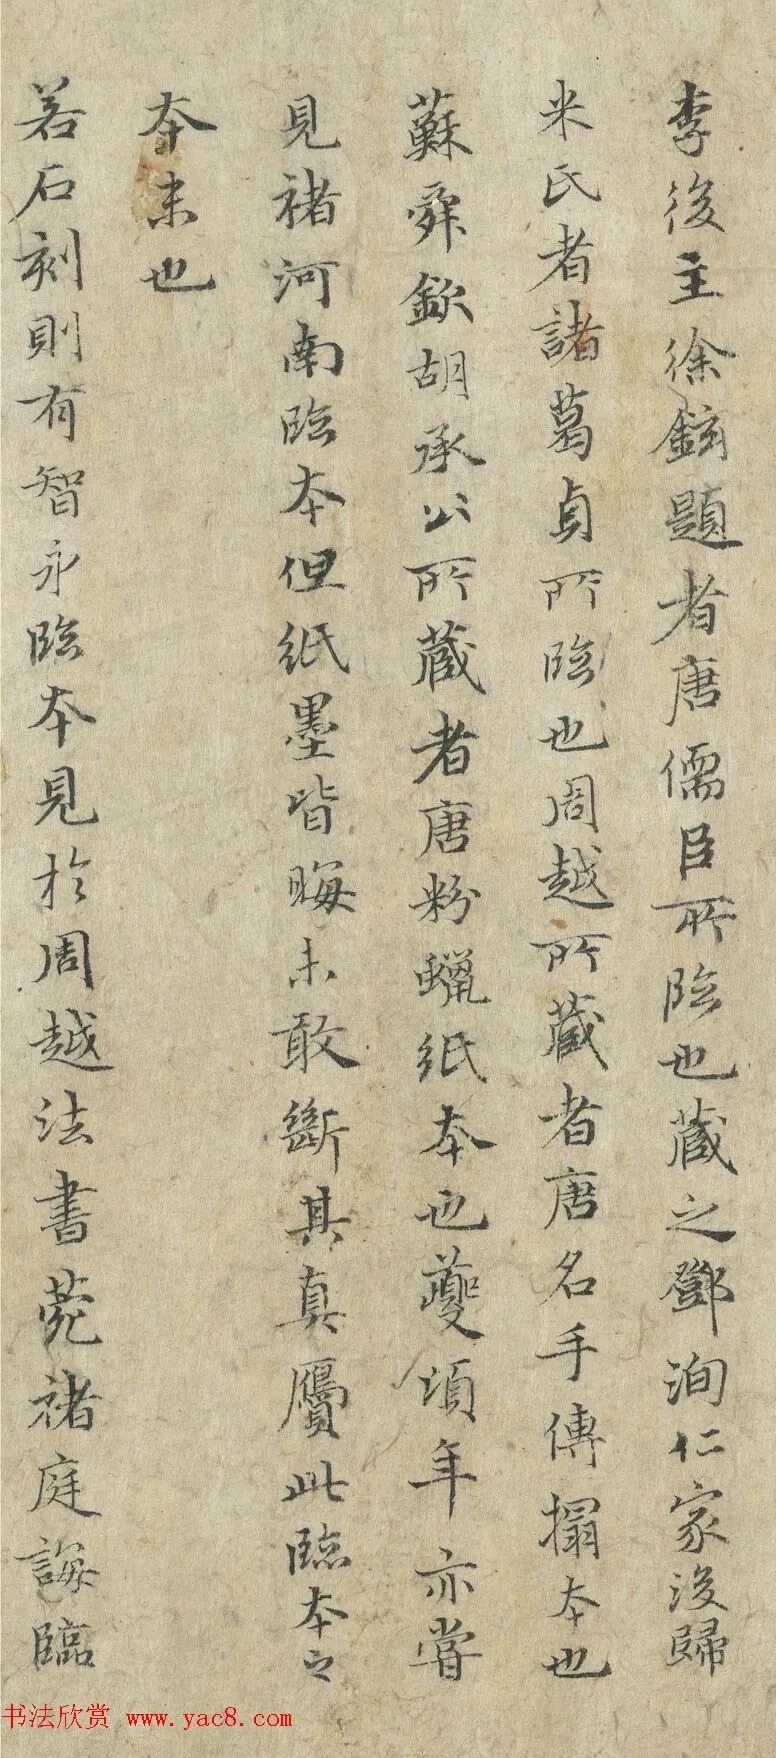 李後主徐鉉題者唐儒臣所臨也藏之鄧洵仁家後歸
米氏者諸葛貞所臨也周越所藏者唐名手傳搨本也
蘇舜欽胡承公所藏者唐粉蠟紙本也夔頃年亦嘗
見禇河南臨本但紙墨皆晦未敢斷其真贗此臨本之
本末也
若石刻則有智永臨本見於周越法書苑禇庭誨臨
书法欣赏 www.yac8.com